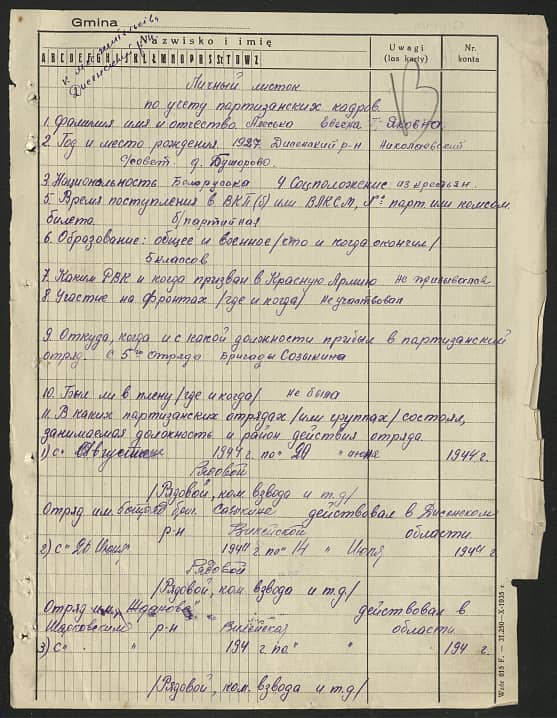 Gmina
Nazwisko i imię
Uwagi
(los karty)
Nr.
konta
A B C D E F G H I J K L Ł M N O P R S Ś T U W Z
Дисненский р-н
13
Личный листок
по учету партизанских кадров.
1. Фамилия имя и отчество Евгена Яковна.
2. Год и место рождения. 1927. Дисненский р-н Николаевский
с/совет. д.
3. Национальность Белоруска 4 Соцположение из крестьян.
5. Время поступления в ВКП(б) или ВЛКСМ, №: парт. или комсом.
билета. б/партийная
6. Образование: общее и военное /что и когда окончил/
5 классов
7. Каким РВК и когда призван в Красную Армию Не призывался
8. Участие на фронтах /где и когда/ Не участвовал
9. Откуда, когда и с какой должности прибыл в партизанский
отряд. с 5го отряда Бригады Сазыкина
10. Был ли в плену /где и когда/ не была
11. В каких партизанских отрядах /или группах/ состоял,
занимаемая должность и район действия отряда.
1) с " 1944 г по " 20 " июня 1944 г.
Рядовой
/Рядовой, ком. взвода и т.д/
Отряд им. действовал в Дисненском
р-н Вилейской области
2) с " 20 Июня 1944 г по " 14 " Июля 1944 г
Рядовой
/Рядовой, ком. взвода и т.д/
Отряд им. Жданова действовал в
Шарковский р-н Вилейская области.
3) с " " 194 г по " " 194 г
/Рядовой, ком. взвода и т.д/
Wzór 615 F. — 31.250—X-1935 r.